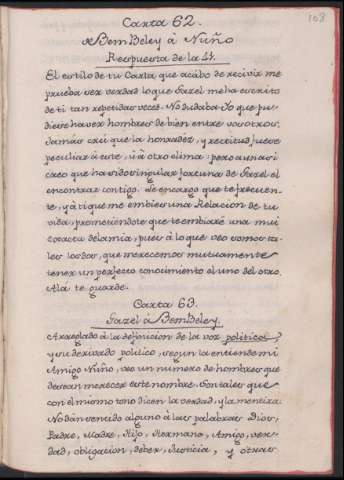 108
Carta 62.
de BemBeley á Nuño
Respuesta de la 42.
El estilo de tu Carta que acábo de recivir me
prueba ser verdad lo que Gazel me ha escrito
de ti tan repetidas veces. No dudaba Yo que pu-
diese haver hombres de bien entre vosotros:
Jamás creí que la honradéz, y rectitud fuese
peculiar á este, ú á otro clima: pero aun así
creo que ha sido singular fortuna de Gazel el
encontrar contigo. Le encargo que te frecuen-
te, y á ti que me embies una Relacion de tu
vida, prometiendote que te embiaré una mui
exacta de la mia, pues á lo que veo somos ta-
les los dos, que merecemos mutuamente
tener un perfecto conocimiento el uno del otro.
Alá te guarde.
Carta 63.
Gazel á BemBeley.
Arreglado á la definicion de la voz politica,
y su derivado politico, segun la entiende mi
Amigo Nuño, veo un numero de hombres que
desean merecer este nombre. Son tales que
con el mismo tono dicen la verdad, y la mentira.
No dán sentido alguno á las palabras Dios,
Padre, Madre, Hijo, Hermano, Amigo, ver-
dad, obligacion, deber, Justicia, y otras